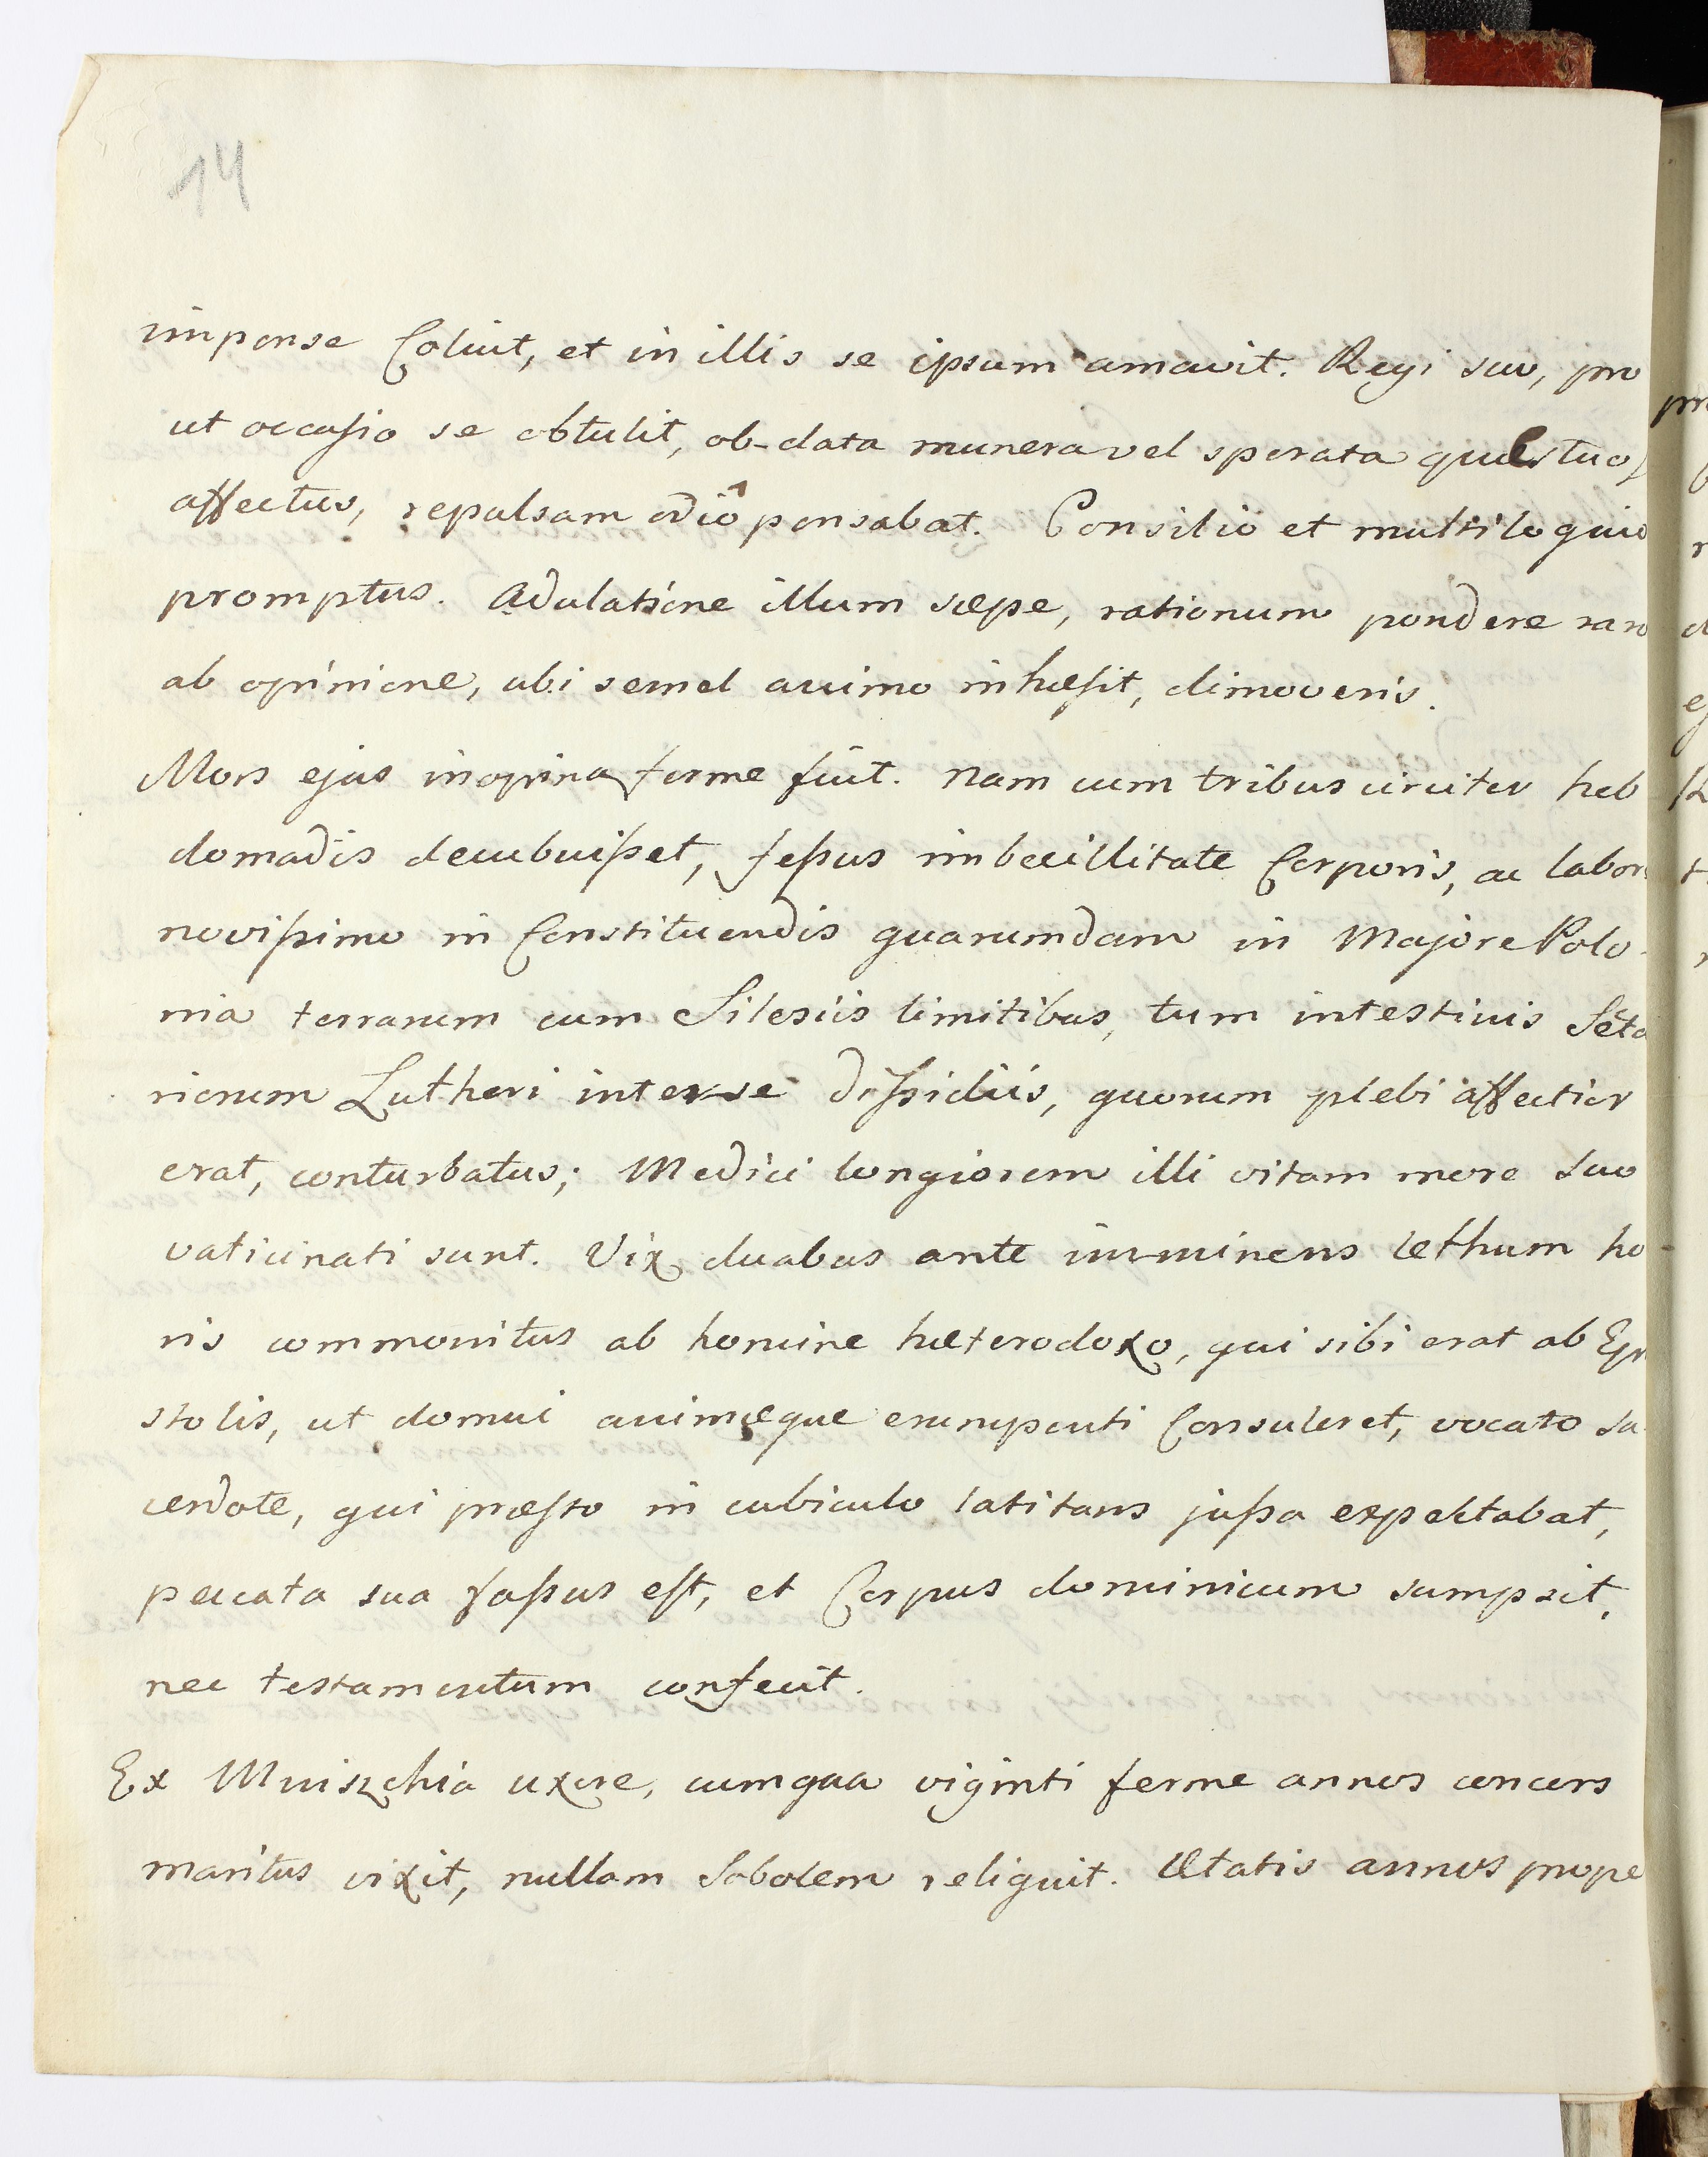 14
impense Coluit, et in illis se ipsum amavit. Regi suo, pro
ut occasio se obtulit, ob data munera vel sperata quæstuos
affectus, repulsam odiô pensabat. Consilio et multiloquio
promptus. Adulatione illum sæpe, rationum pondere raro
ab opinione, ubi semel animo inhæsit, dimoveris.
Mors ejus inopina ferme fuit. Nam cum tribus circiter heb
domadis decubuisset, fessus imbecillitate Corporis, ac labore
novissimo in Constituendis quarumdam in Majore Polo-
nia terrarum cum Silesiis limitibus, tum intestinis Secta
riorum Lutheri inter se dissidiis, quorum plebi affectior
erat, conturbatus; Medici longiorem illi vitam more suo
vaticinati sunt. Vix duabus ante imminens lethum ho-
ris commonitus ab homine hæterodoxo, qui sibi erat ab Epi
stolis, ut domui animæque erumpenti Consuleret, vocato sa
cerdote, qui præsto in cubiculo latitans jussa expectabat,
peccata sua fassus est, et Corpus dominicum sumpsit,
nec testamentum confecit.
Ex Mniszchia uxore, cum qua viginti ferme annos concors
maritus vixit, nullam Sobolem reliquit. Ætatis annos prope